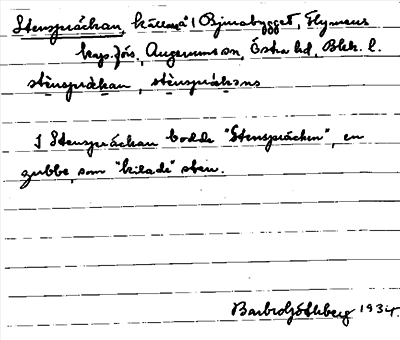 Stenspräckan, källare i Björnabygget, Flymens
kaps.förs., Augerums sn, Östra hd, Blek. l.
stè̀nspräkan, stè̀nspräkans
I Stenspräckan bodde "Stenspräcken", en
gubbe, som "kilade" sten.
Barbro Götlberg 1934.